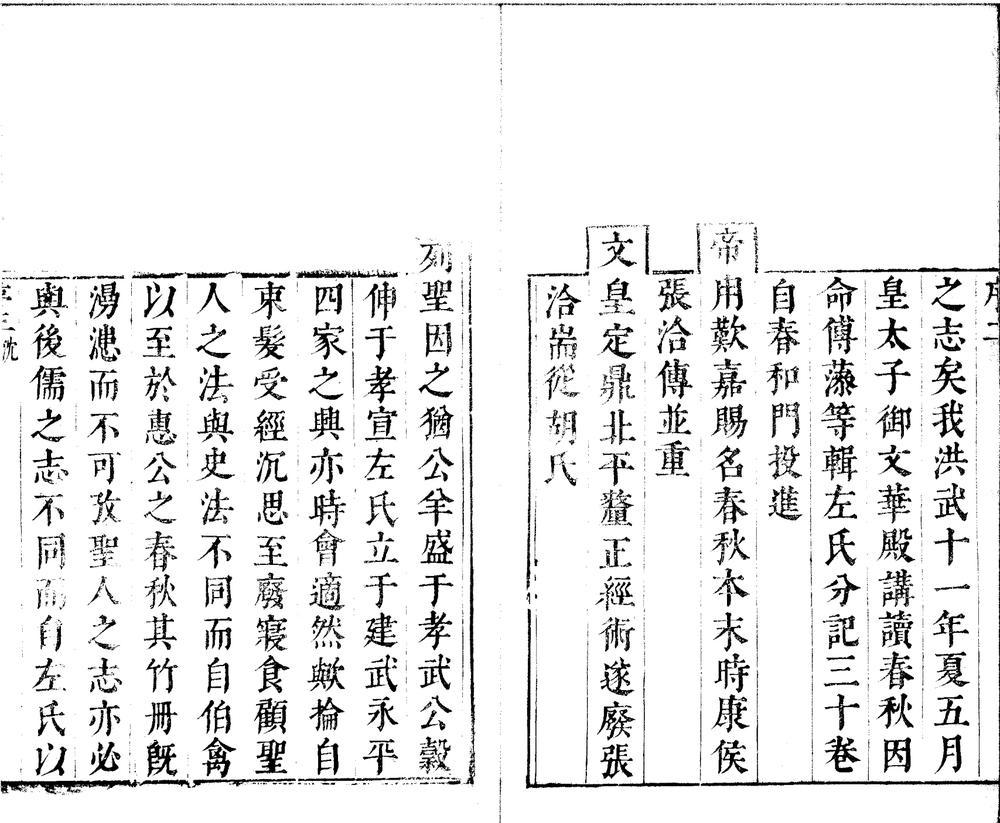 之志矣我洪武十一年夏五月
皇太子御文華殿講讀春秋因
命傅藻等輯左氏分記三十卷
自春和門投進
帝用歎嘉賜名春秋本末時康侯
張洽傳並重
文皇定鼎北平釐正經術遂廢張
洽耑從胡氏
列聖因之猶公羊盛于孝武公穀
伸于孝宣左氏立于建武永平
四家之興亦時會適然歟掄自
束髮受經沉思至廢寢食顧聖
人之法與史法不同而自伯禽
以至於惠公之春秋其竹冊旣
湯漶而不可攷聖人之志亦必
與後儒之志不同而自左氏以